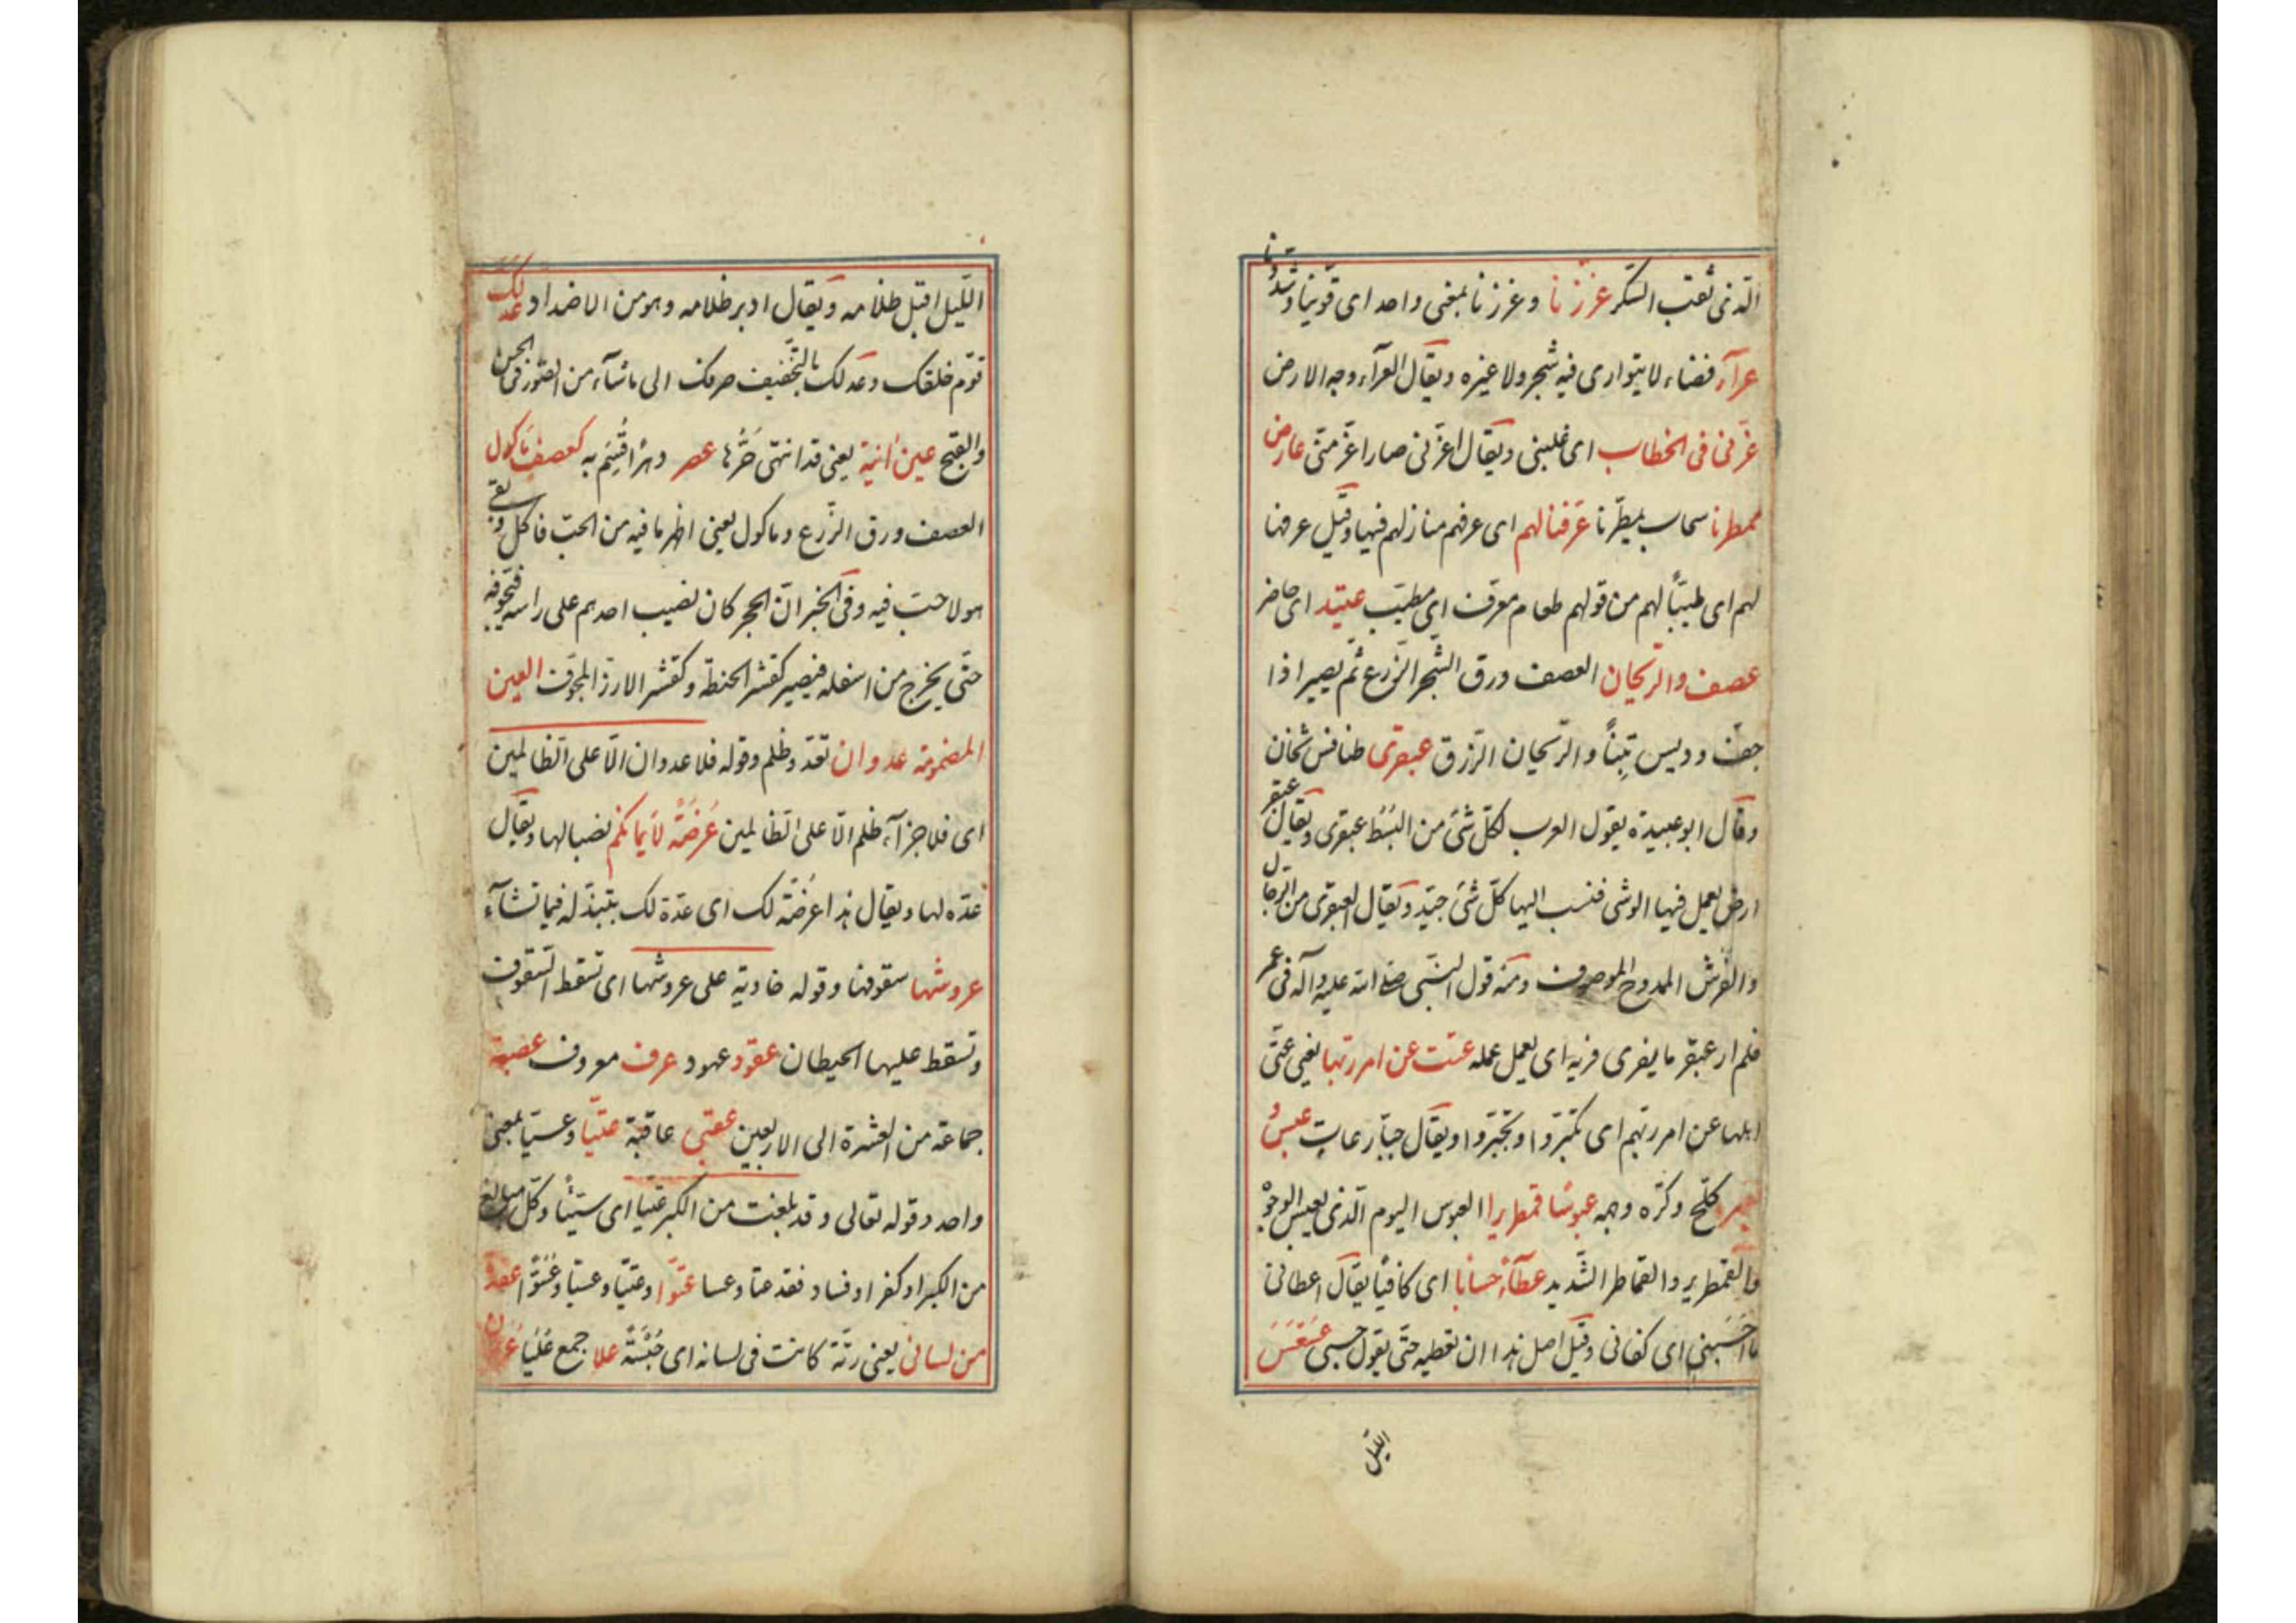 الّذى ثقب السّكر عززنا وعززنا بمعنى واحد اى قوّينا وشدّدنا
عرآء فضاء لا يتوارى فيه شجر ولا غيره ويقال العرآء وجه الارض
عزّنى فى الخطاب اى غلبنى ويقال اعزّنى صار اعزّ منّى عارض
ممطرنا سحاب يمطرنا عرّفها لهم اى عرفهم منازلهم فيها وقيل عرفها
لهم اى طيّبها لهم من قولهم طعام معرّف اى مطيّب عتيد اى حاضر
عصف والرّيحان العصف ورق الشّجر الزّرع ثمّ يصير اذا
جفّ وديس تبنًا والرّيحان الرّزق عبقرى طنافس ثخان
وقال ابو عبيدة يقول العرب لكلّ شئ من البسط عبقرى ويقال عبقر
ارض يعمل فيها الوشى فنسب اليها كلّ شئ جيّد ويقال العبقرى من الرّجال
والفرش الممدوح الموصوف ومنه قول النّبى صلى الله عليه وآله فى عمر
فلم ار عبقريا يفرى فريه اى يعمل عمله عتت عن امر ربّها يعنى عتى
اهلها عن امر ربّهم اى تكبّروا وتجبّروا ويقال جبّار عات عبس و
بسر كلّح وكرّه وجهه عبوسًا قمطريرا العبوس اليوم الّذى يعبس الوجوه
والقمطرير والقماطر الشّديد عطآء حسابا اى كافيا يقال اعطانى
ما احسبنى اى كفانى وقيل اصل هذا ان تعطيه حتّى يقول حسبى عسعس
اللّيل
اللّيل اقبل ظلامه ويقال ادبر ظلامه وهو من الاضداد عدلك
قوّم خلقك وعدلك بالتّخفيف صرفك الى ما شآء من الصّور فى الحسن
والقبح عين آنية يعنى قد انتهى حرّها عصر دهر اقسم به كعصف ماكول
العصف ورق الزّرع وماكول يعنى اخذ ما فيه من الحبّ فاكل وبقى
هو لا حبّ فيه وفى الخبر انّ الحجر كان نصيب احدهم على راسه فتجوفه
حتّى يخرج من اسفله فيصير كقشر الحنطة وكقشر الارز المجوّف العين
المضمومة عدوان تعدّ وظلم وقوله فلا عدوان الّا على الظّالمين
اى فلا جزآء ظلم الّا على الظّالمين عرضة لأيمانكم نصبا لها ويقال
عدّه لها ويقال هذا عرضة لك اى عدّة لك تبتذله فيما تشآء
عروشها سقوفها وقوله خاوية على عروشها اى تسقط السّقوف
وتسقط عليها الحيطان عقود عهود عرف معروف عصبة
جماعة من العشرة الى الاربعين عقبى عاقبة عتيّا وعسيّا بمعنى
واحد وقوله تعالى وقد بلغت من الكبر عتيّا اى سيئا وكلّ مبالغ
من الكبر او كفر او فساد فقد عتا وعسا عتوّا وعتيّا وعسيّا وعسوّا عقدة
من لسانى يعنى رتّة كانت فى لسانه اى حبسة علا جمع عليا